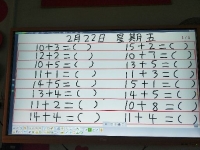 2月22日 星期五
10+3=( ) 15+2=( )
12+2=( ) 10+7=( )
10+5=( ) 13+5=( )
11+1=( ) 11+3=( )
14+5=( ) 15+1=( )
13+4=( ) 14+5=( )
11+2=( ) 10+8=( )
14+4=( ) 11+4=( )